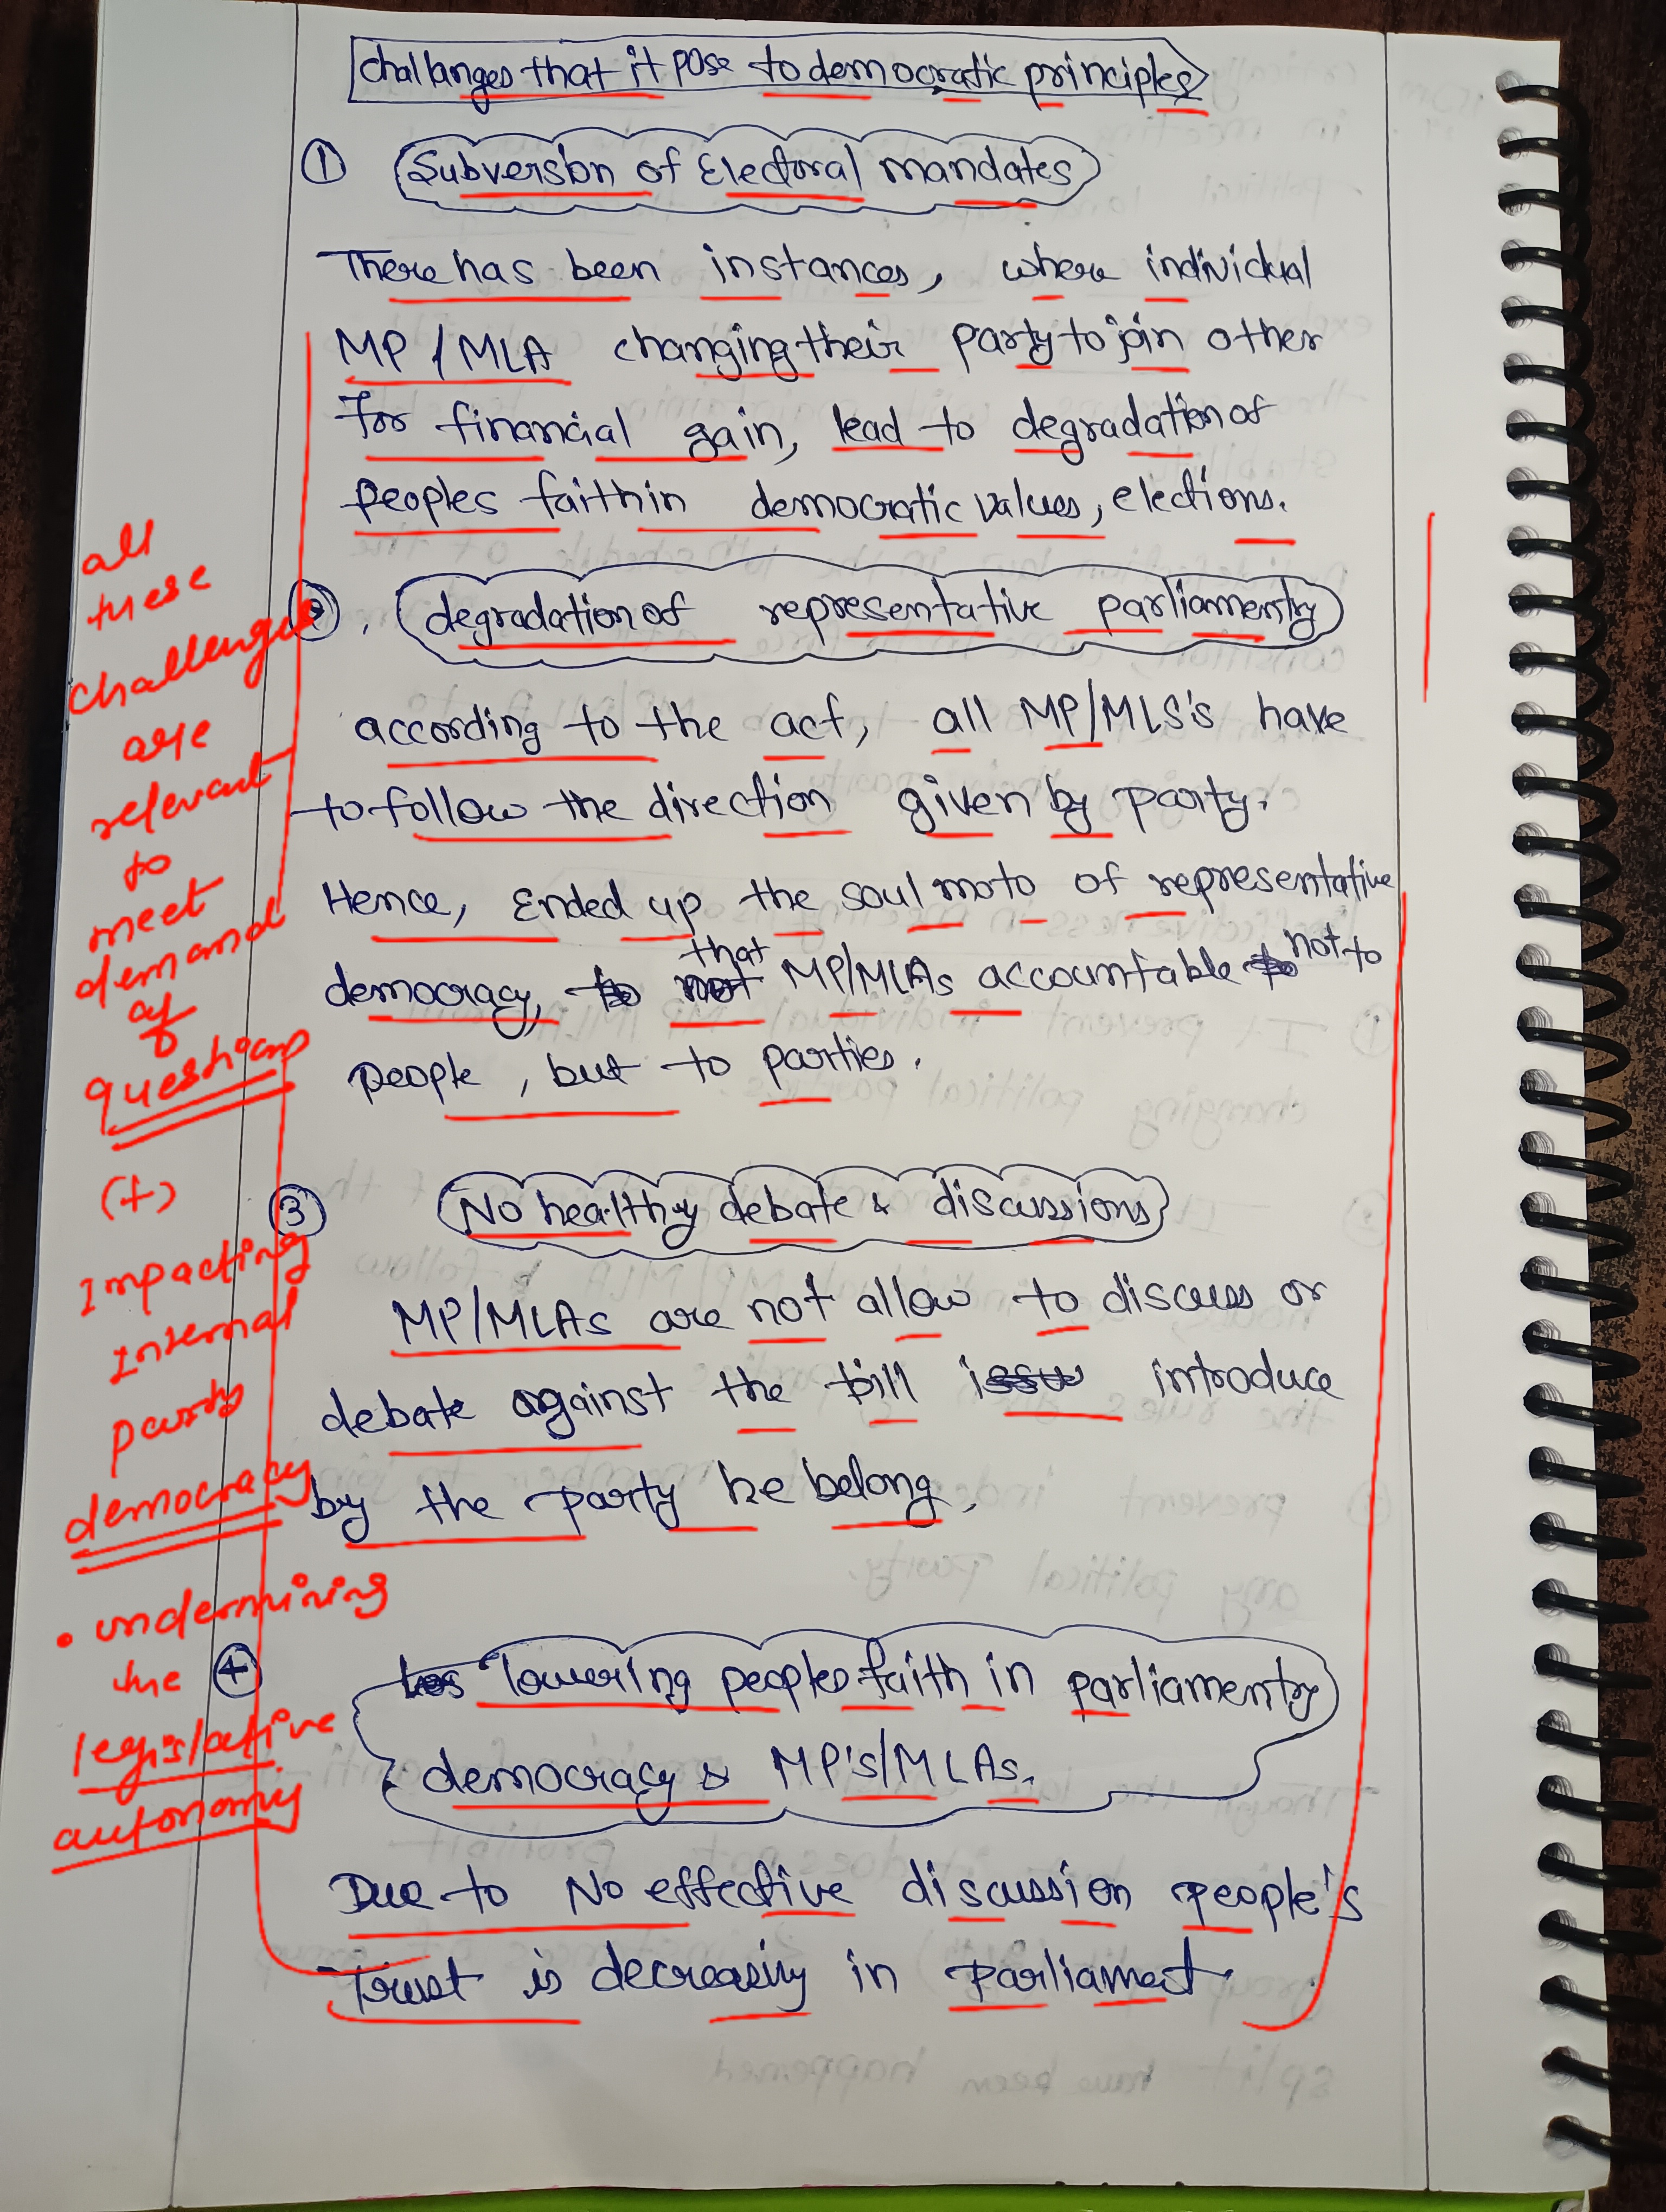 challanges that it pose to democratic principles
① Subversion of Electoral mandates
There has been instances, where individual
MP/MLA changing their party to join other
for financial gain, lead to degradation of
peoples faith in democratic values, elections.
②. degradation of representative parliamentry
according to the act, all MP/MLS's have
to follow the direction given by party.
Hence, Ended up the soul moto of representative
democracy, that MP/MLAs accountable not to
people, but to parties.
③ No healthy debate & discussions
MP/MLAs are not allow to discuss or
debate against the bill introduce
by the party he belong,
④ lowering peoples faith in parliamentry
democracy & MP's/MLAs.
Due to No effective discussion people's
Trust is decreasing in parliament
all
these
challenges
are
relevant
to
meet
demand
of
question
(+)
Impacting
Internal
party
democracy
• undermining
the
legislative
autonomy